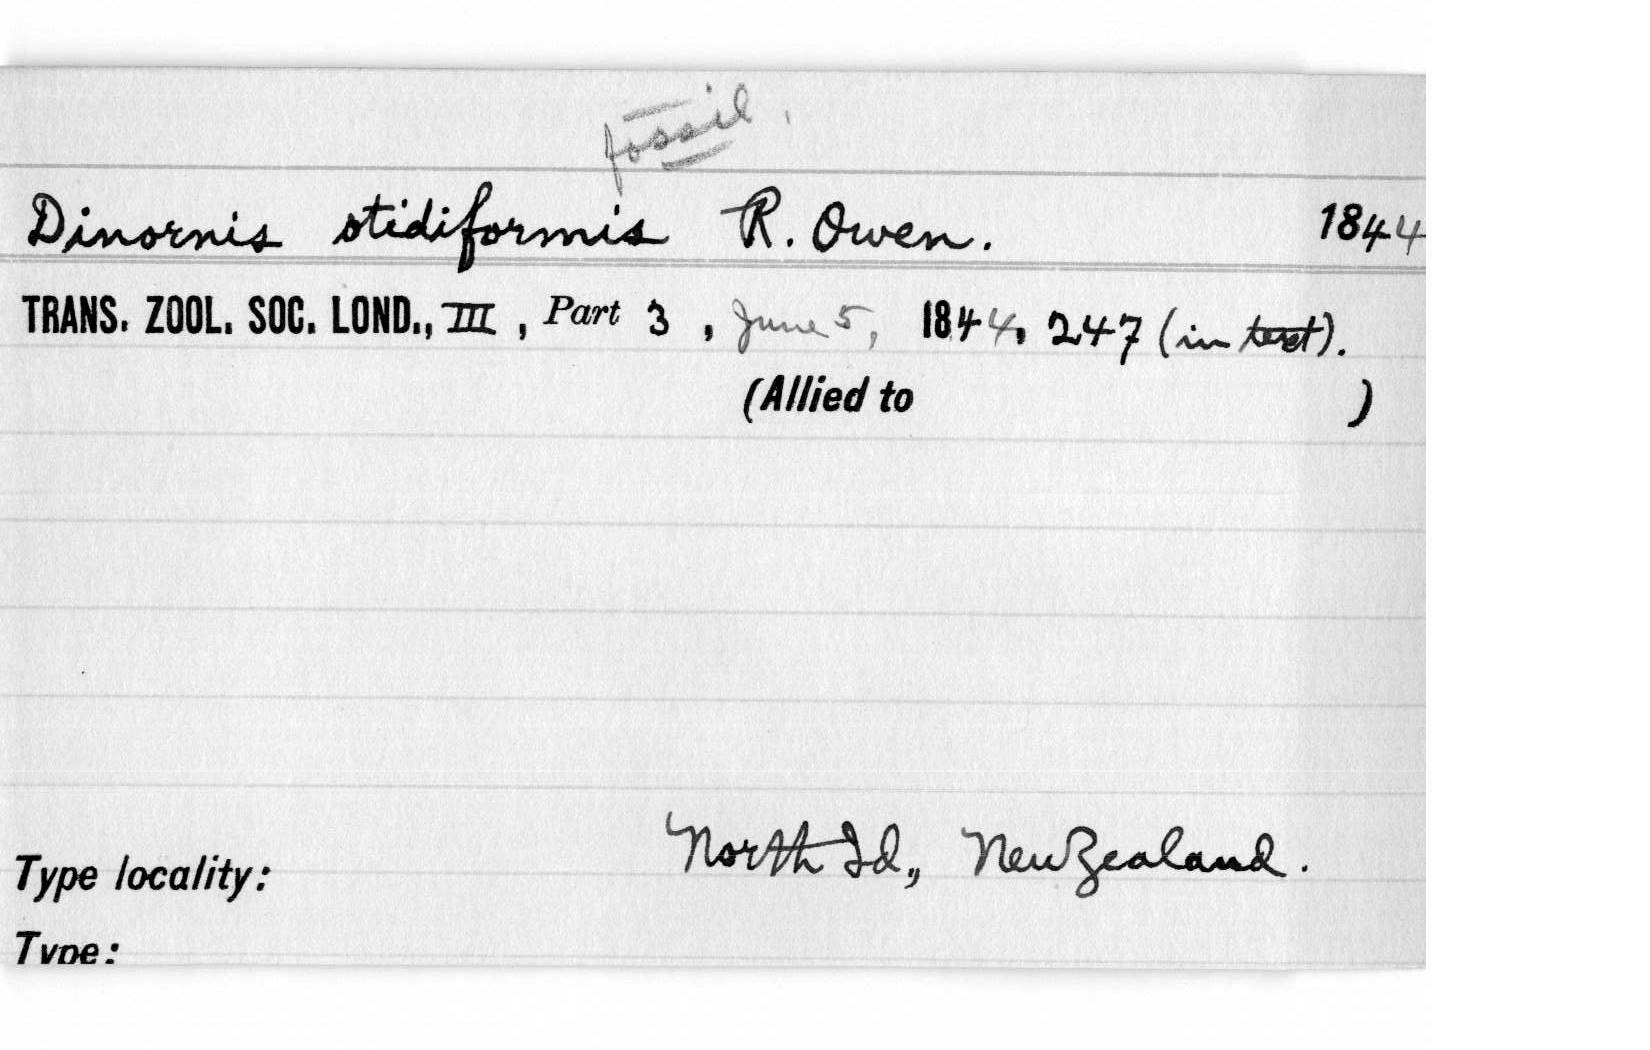 fossil.
Dinornis otidiformis R. Owen. 1844
TRANS. ZOOL. SOC. LOND., III, Part 3, June 5, 1844, 247 (in text).
(Allied to )
Type locality: North Id., New Zealand.
Type: